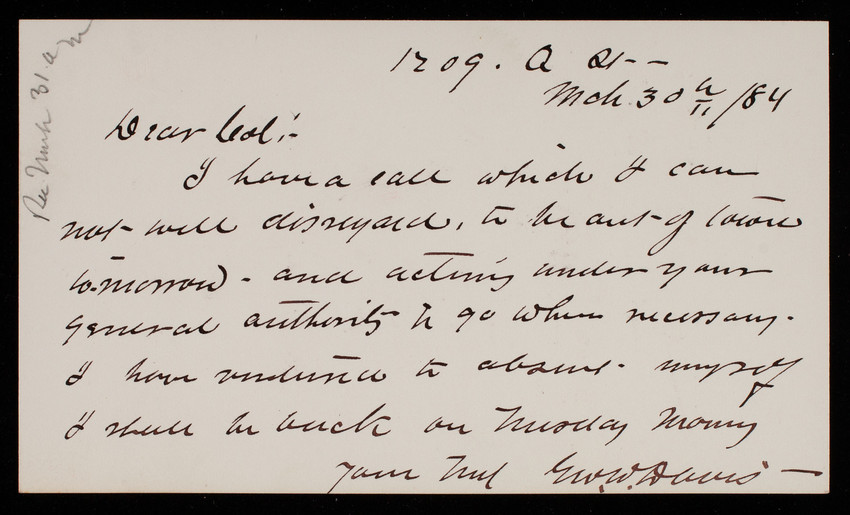 Rec March 31 am
1709. Q St--
Mch 30th /84
Dear Col:-
I have a call which I can
not well disregard, to be out of town
to-morrow - and acting under your
general authority to go when necessary.
I have ventured to absent myself
I shall be back on Tuesday Morng
Your Geo. W. Davis -